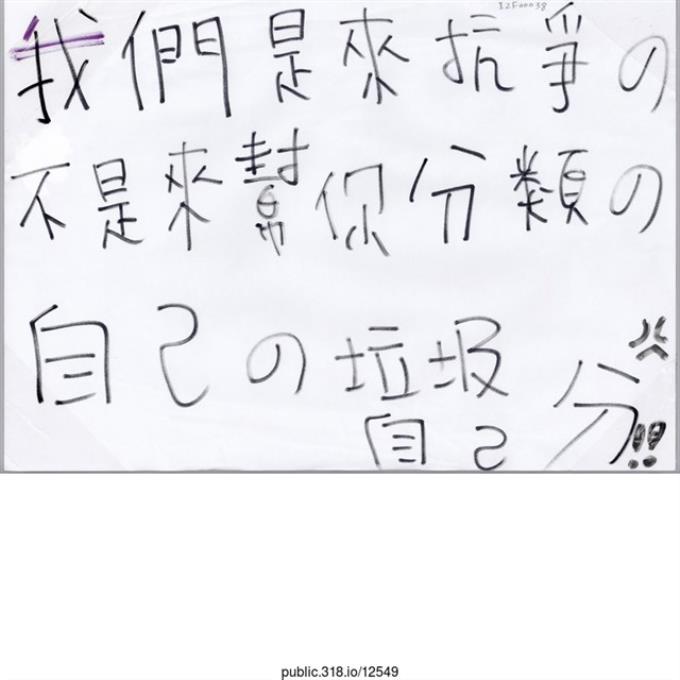 I2F00038
我們是來抗爭の
不是來幫你分類の
自己の垃圾
自己分!!
public.318.io/12549